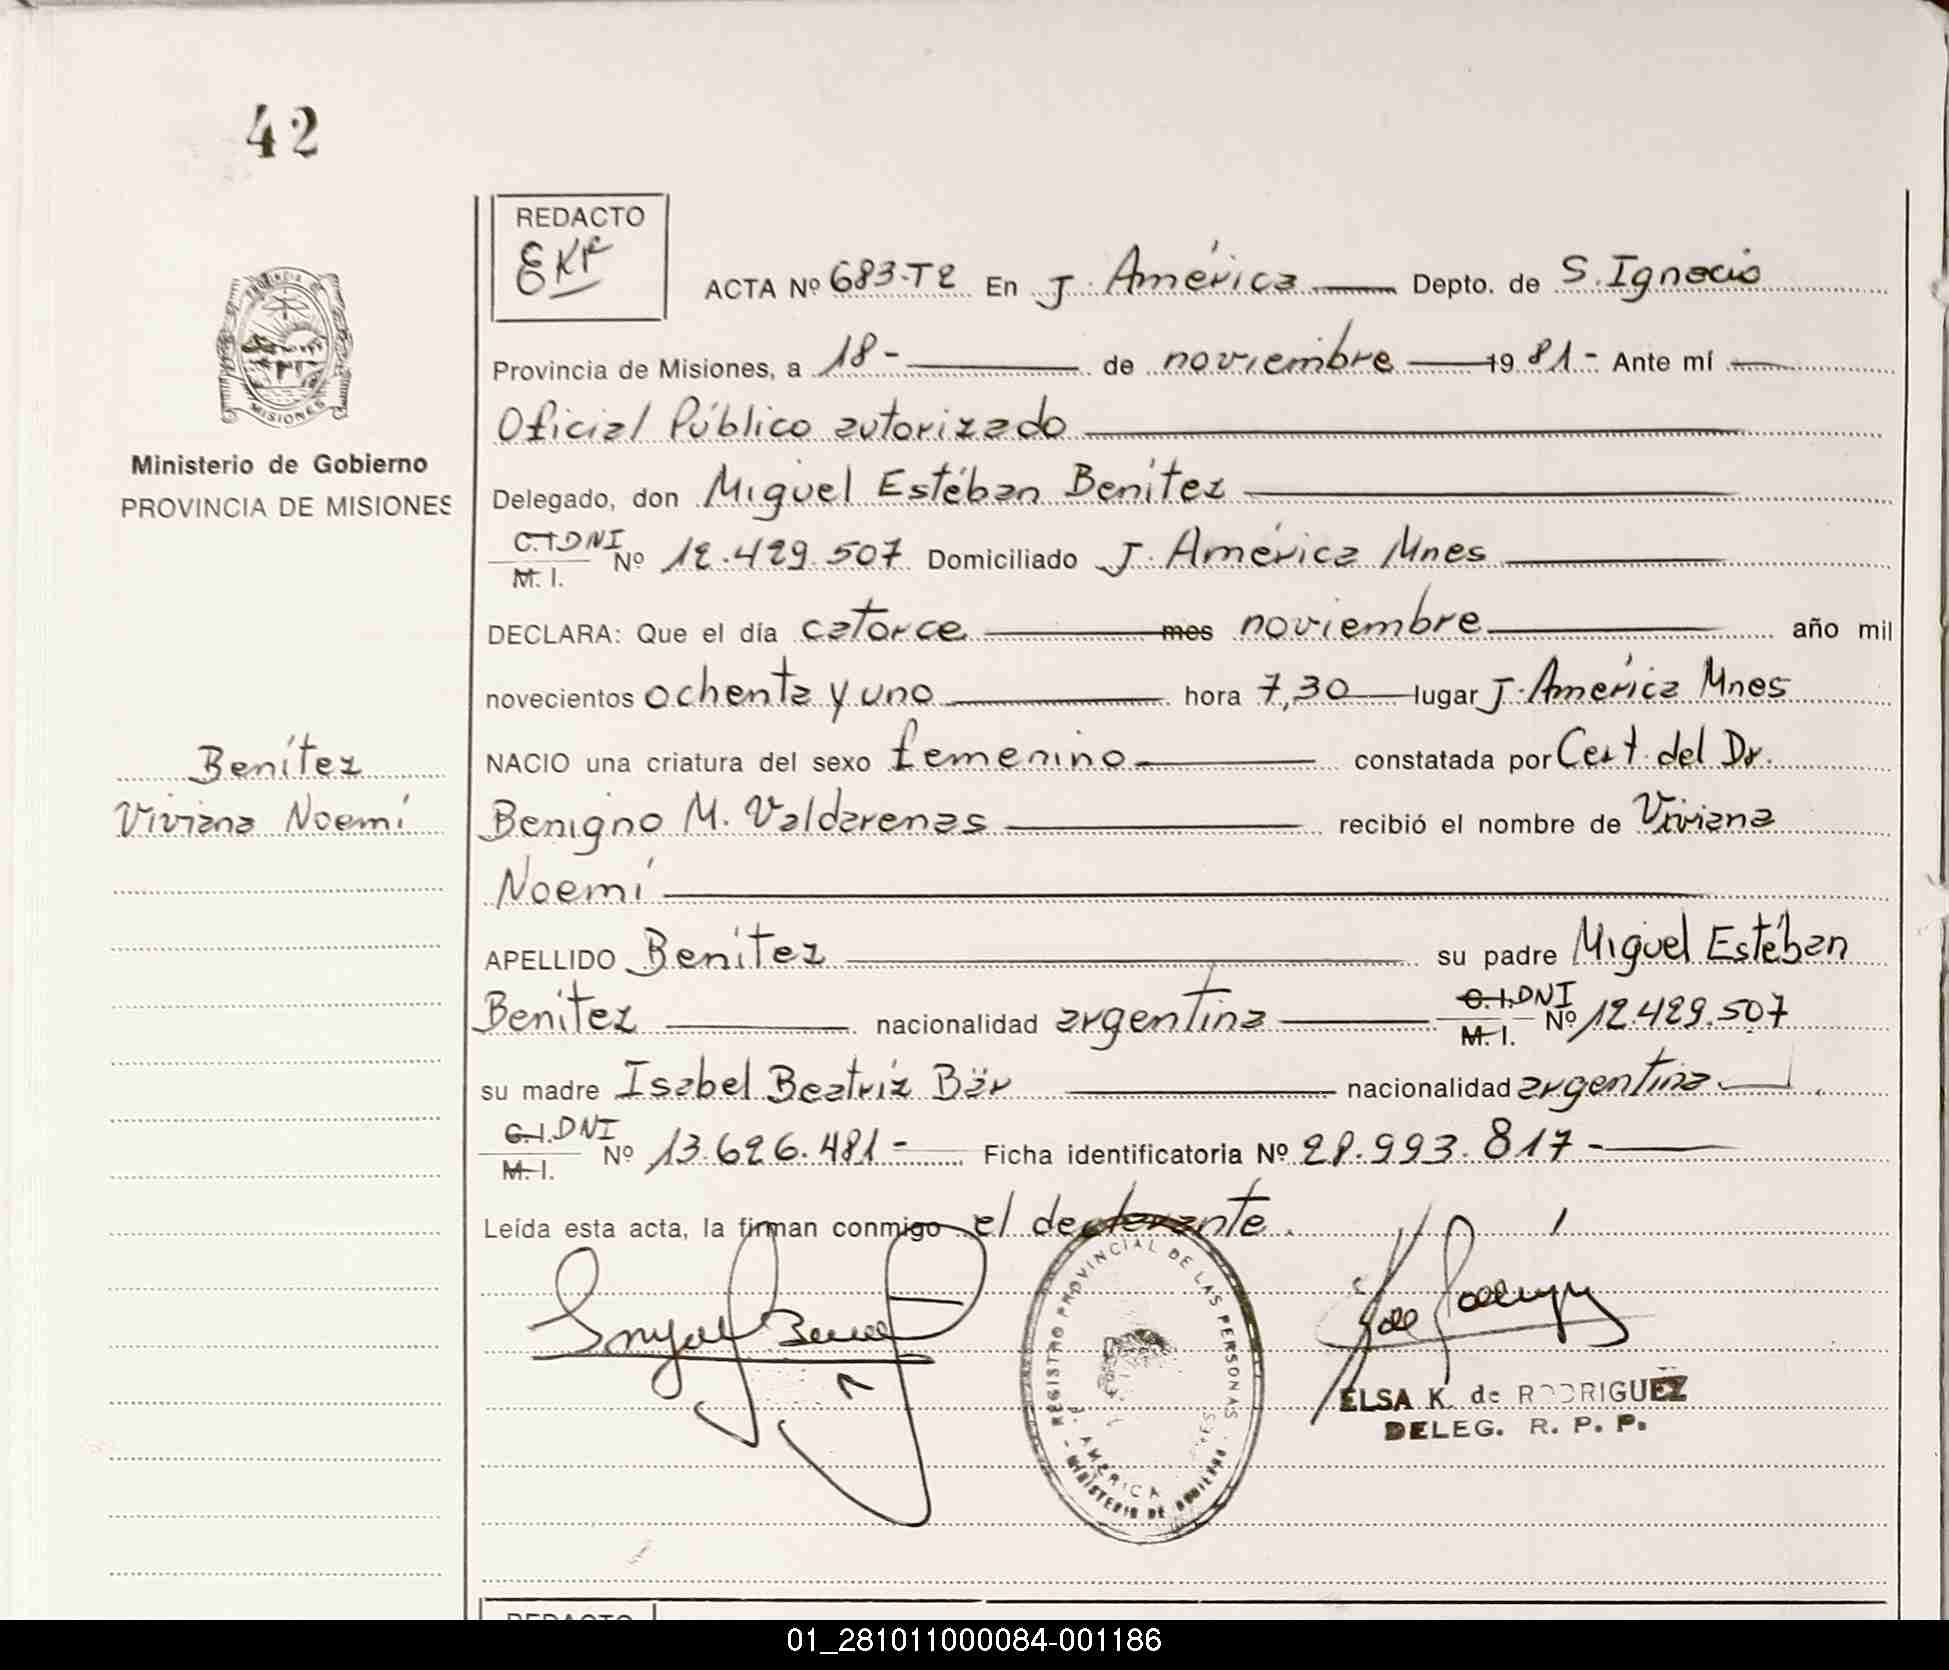 42
REDACTO
EKR
ACTA Nº 683-T2 En J. América Depto. de S. Ignacio
Provincia de Misiones, a 18- de noviembre 19 81- Ante mí
Oficial Público autorizado
Delegado, don Miguel Estéban Benítez
C.I. DNI
M. I. Nº 12.429.507 Domiciliado J. América Mnes
DECLARA: Que el día catorce mes noviembre año mil
novecientos ochenta y uno hora 7,30 lugar J. América Mnes
NACIO una criatura del sexo femenino constatada por Cert. del Dr.
Benigno M. Valdarenas recibió el nombre de Viviana
Noemí
APELLIDO Benítez su padre Miguel Estéban
Benítez nacionalidad argentina C.I. DNI M. I. Nº 12.429.507
su madre Isabel Beatríz Bär nacionalidad argentina
C.I. DNI
M. I. Nº 13.626.481- Ficha identificatoria Nº 28.993.817-
Leída esta acta, la firman conmigo el declarante.
PROVINCIA DE
MISIONES
Ministerio de Gobierno
PROVINCIA DE MISIONES
Benítez
Viviana Noemí
REGISTRO PROVINCIAL DE LAS PERSONAS
AMERICA
MINISTERIO DE GOBIERNO
ELSA K. de RODRIGUEZ
DELEG. R. P. P.
REDACTO
01_281011000084-001186